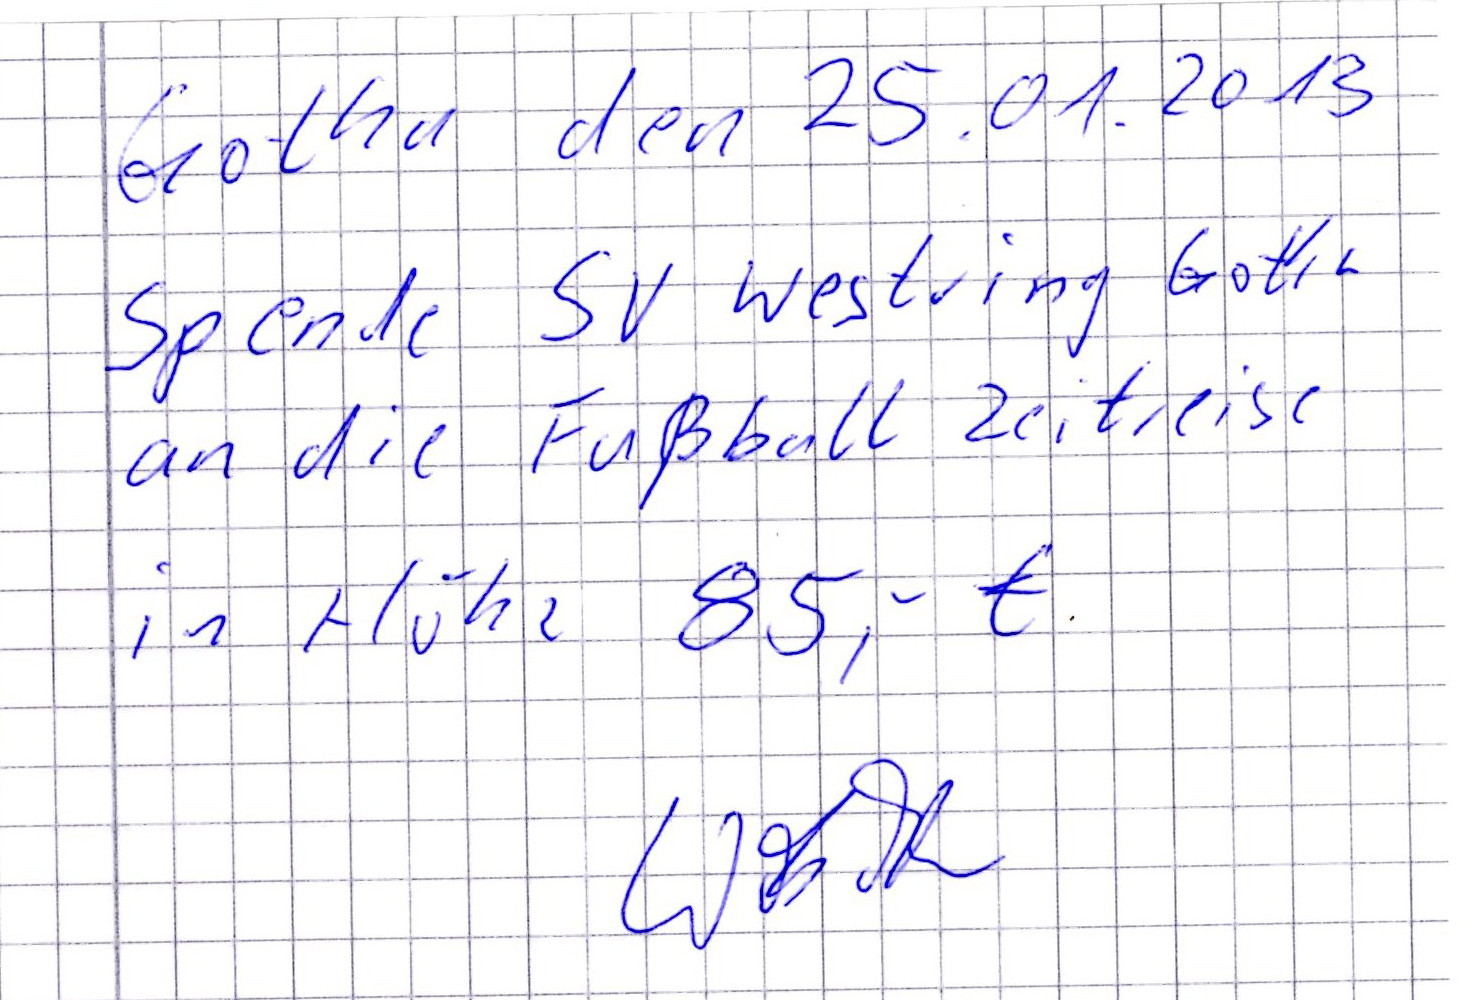 Gotha den 25.01.2013
Spende SV Westring Gotha
an die Fußball Zeitreise
in Höhe 85,- €.